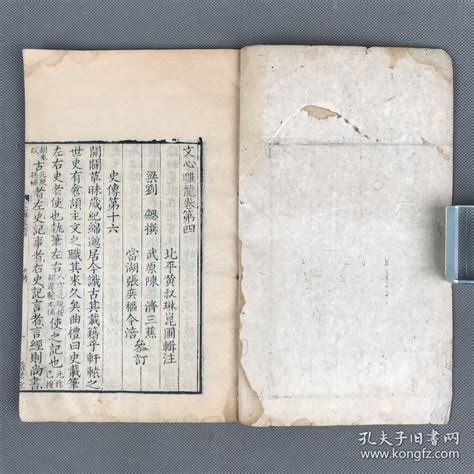 文心雕龍卷第四
梁劉 勰撰
北平黃叔琳崑圃輯注
武原陳 濟三蕉
當湖張奕樞今涪
參訂
史傳第十六
開闢草昧歲紀綿邈居今識古其載籍乎軒轅之
世史有倉頡主文之職其來久矣曲禮曰史載筆
左右史者使也執筆左右使之記也
古者左史記事者右史記言者言經則尚書
孔夫子旧书网
www.kongfz.com